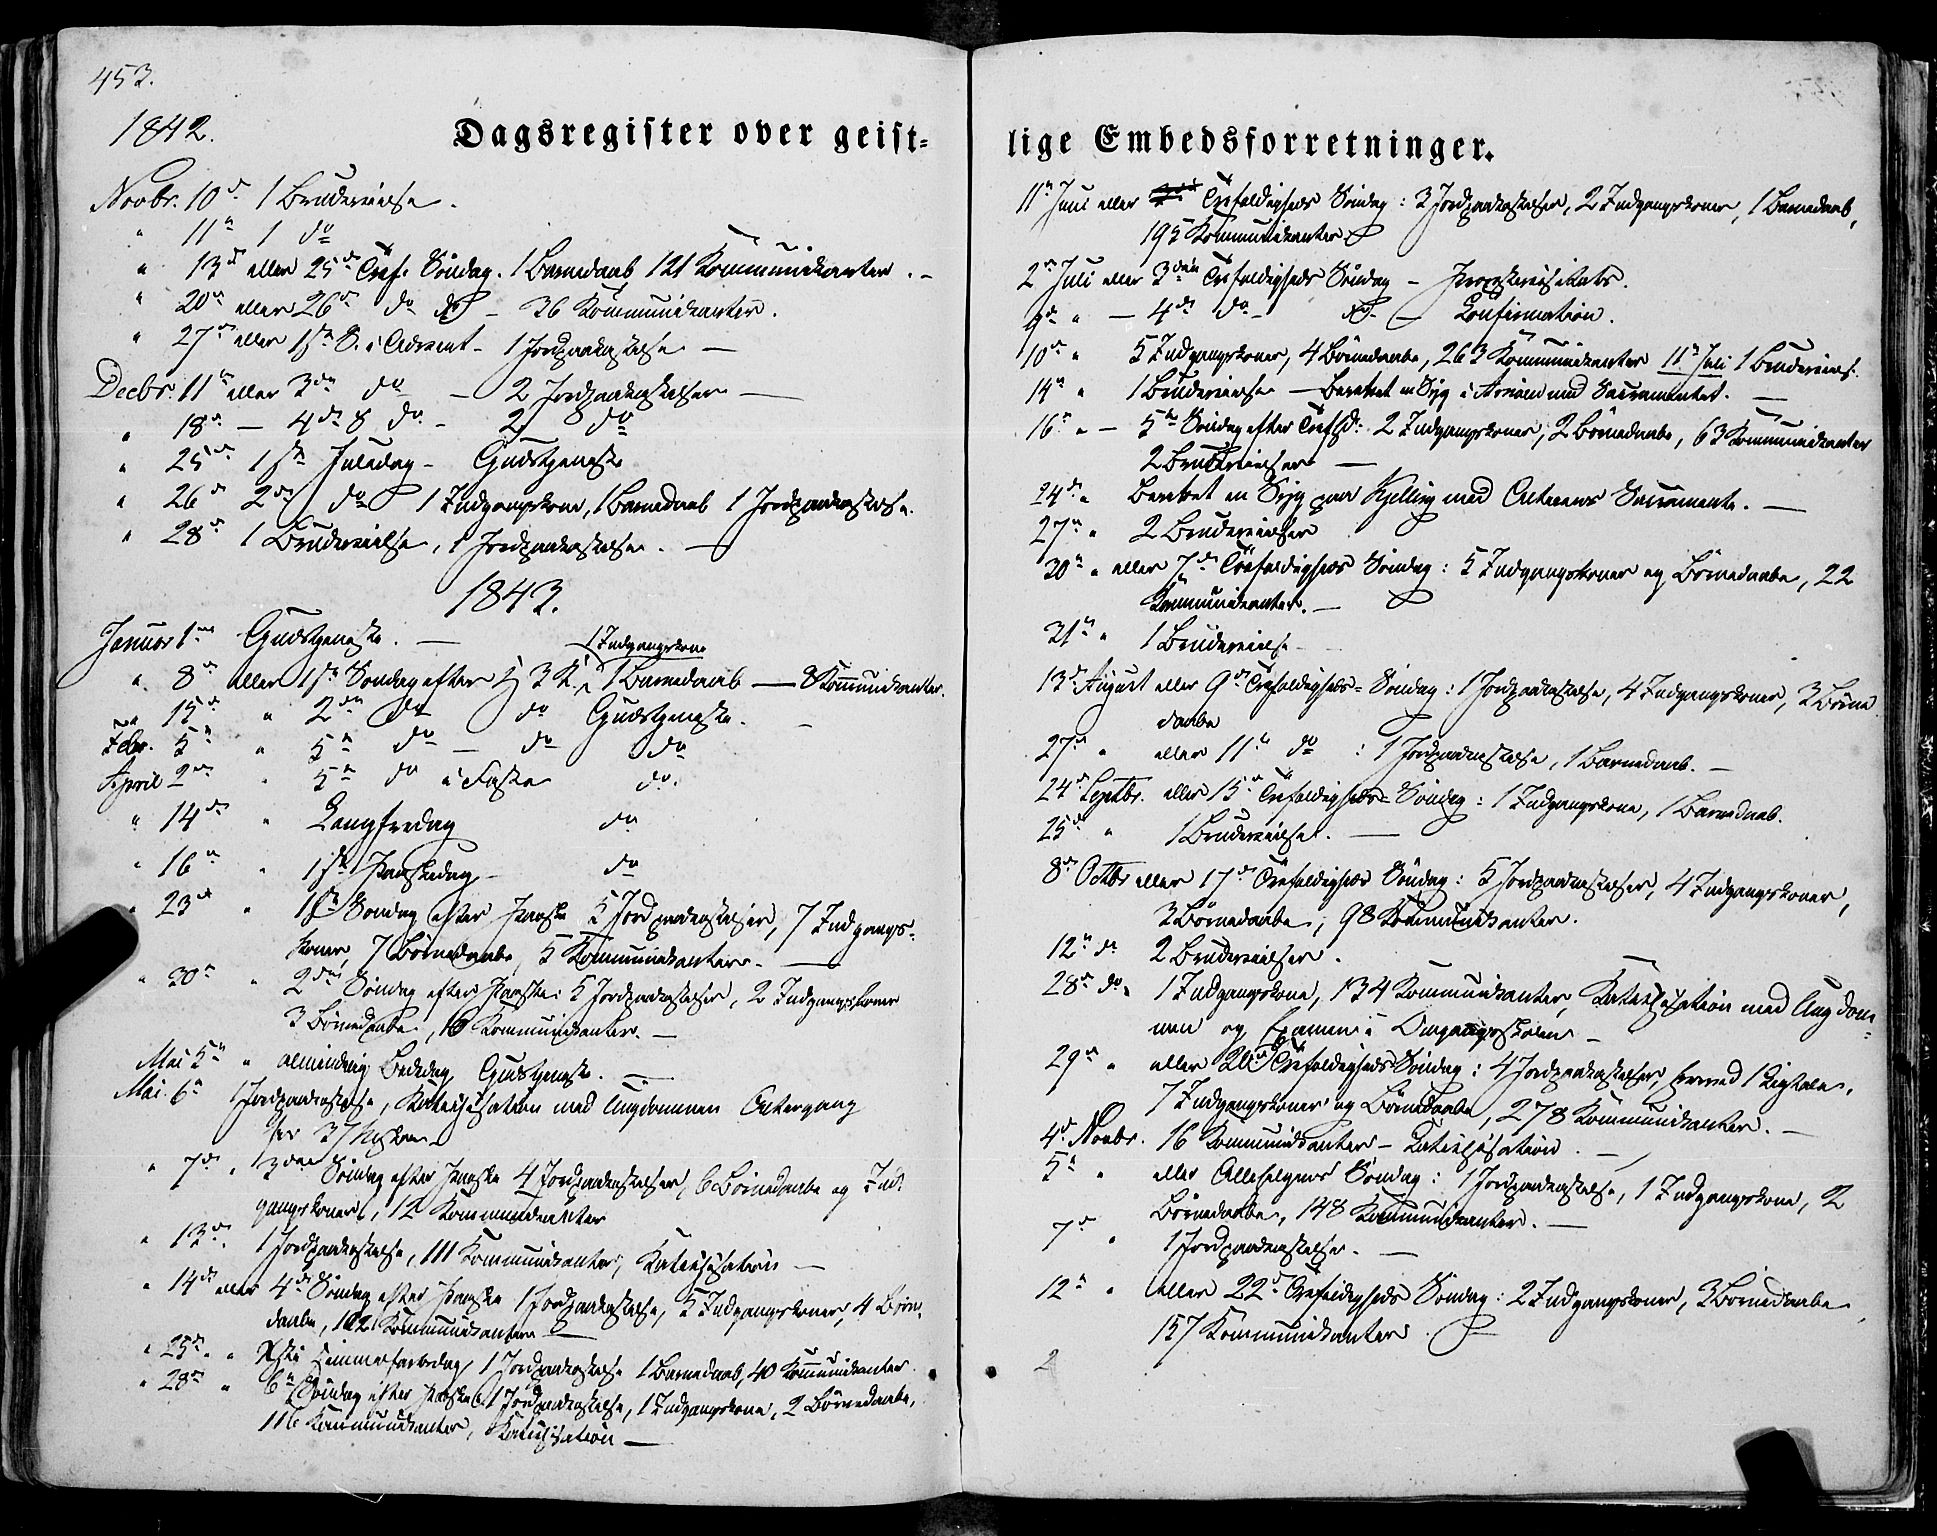 453.
1842.
Dagsregister over geist-
Novbr. 10de 1 Brudevielse.
" 11te 1 do
" 13de eller 25de Tref. Søndag. 1 Barnedaab 121 Kommunikanter. -
" 20de eller 26de do do - 36 Kommunikanter.
" 27de eller 1ste S. i Advent - 1 Jordpaakastelse —
Decbr. 11te eller 3die do - 2 Jordpaakastelser —
" 18de - 4de S do - 2 do
" 25de 1ste Juledag - Gudstjeneste
" 26de 2den do 1 Indgangskone, 1 Barnedaab 1 Jordpaakastelse.
" 28de 1 Brudevielse, 1 Jordpaakastelse. —
1843.
Januar 1ste Gudstjeneste. —
1 Indgangskone
" 8de eller 1ste Søndag efter H 3 K. 1 Barnedaab — 8 Kommunikanter.
" 15de " 2den do do Gudstjeneste. —
Febr. 5te " 5te do — do do
April 2den " 5te do i Faste do.
" 14de " Langfredag do
" 16de " 1ste Paaskedag do
" 23de " 1ste Søndag efter Paaske 5 Jordpaakastelser, 7 Indgangs-
koner, 7 Børnedaabe, 5 Kommunikanter. —
" 30te " 2den Søndag efter Paaske: 5 Jordpaakastelser, 2 Indgangskoner
3 Børnedaabe, 16 Kommunikanter. —
Mai 5te " almindelig Bededag Gudstjeneste. —
Mai 6te 1 Jordpaakastelse, Katechisation med Ungdommen
" 7de " 3die Søndag efter Paaske 4 Jordpaakastelser, 6 Børnedaabe og Ind-
gangskoner, 12 Kommunikanter
" 13de 1 Jordpaakastelse, 111 Kommunikanter, Katechisation —
" 14de eller 4de Søndag efter Paaske 1 Jordpaakastelse, 5 Indgangskoner, 4 Børne-
daabe, 102 Kommunikanter —
" 25de " Xsti Himmelfartsdag 1 Jordpaakastelse 1 Barnedaab, 40 Kommunikanter.
" 28de " 6te Søndag efter Paaske 1 Jordpaakastelse, 1 Indgangskone, 2 Børnedaabe,
116 Kommunikanter, Katechisation —
lige Embedsforretninger.
11te Juni eller Trefoldigheds Søndag: 3 Jordpaakastelser, 2 Indgangskoner, 1 Barnedaab,
195 Kommunikanter
2den Juli eller 3die Trefoldigheds Søndag - Provstevisitats.
9de " - 4de do - do - Confirmation.
10de " 5 Indgangskoner, 4 Børnedaabe, 263 Kommunikanter 11te Juli 1 Brudevielse.
14de " 1 Brudevielse — Berettet en Syg i med Sacramentet. —
16de " - 5te Søndag efter Trefld: 2 Indgangskoner, 2 Børnedaabe, 63 Kommunikanter
2 Brudevielser —
24de " Berettet en Syg paa Kjelling med Alterens Sacramente. —
27de " 2 Brudevielser
30te " eller 7de Trefoldigheds Søndag: 5 Indgangskoner og Børnedaabe, 22
Kommunikanter. —
31te " 1 Brudevielse -
13de August eller 9de Trefoldigheds-Søndag: 1 Jordpaakastelse, 4 Indgangskoner, 3 Børne
daabe
27de " eller 11te do : 1 Jordpaakastelse, 1 Barnedaab. —
24de Septbr. eller 15de Trefoldigheds-Søndag: 1 Indgangskone, 1 Barnedaab.
25de " 1 Brudevielse. —
8de Octbr eller 17de Trefoldigheds Søndag: 5 Jordpaakastelser, 4 Indgangskoner,
3 Børnedaabe, 98 Kommunikanter.
12te do 2 Brudevielser.
28de do " 1 Indgangskone, 134 Kommunikanter, Katechisation med Ungdom-
men og Examen i Omgangsskolen —
29de " eller 20de Trefoldigheds Søndag: 4 Jordpaakastelser, hermed 1 Ligtale,
7 Indgangskoner og Børnedaabe, 278 Kommunikanter. —
4de Novbr. 16 Kommunikanter - Katechisation. —
5te " eller Allehelgens Søndag: 1 Jordpaakastelse, 1 Indgangskone, 2
Børnedaabe, 148 Kommunikanter. —
7de " 1 Jordpaakastelse. —
12te " eller 22de Trefoldigheds Søndag: 2 Indgangskoner, 3 Børnedaabe
157 Kommunikanter. —
2